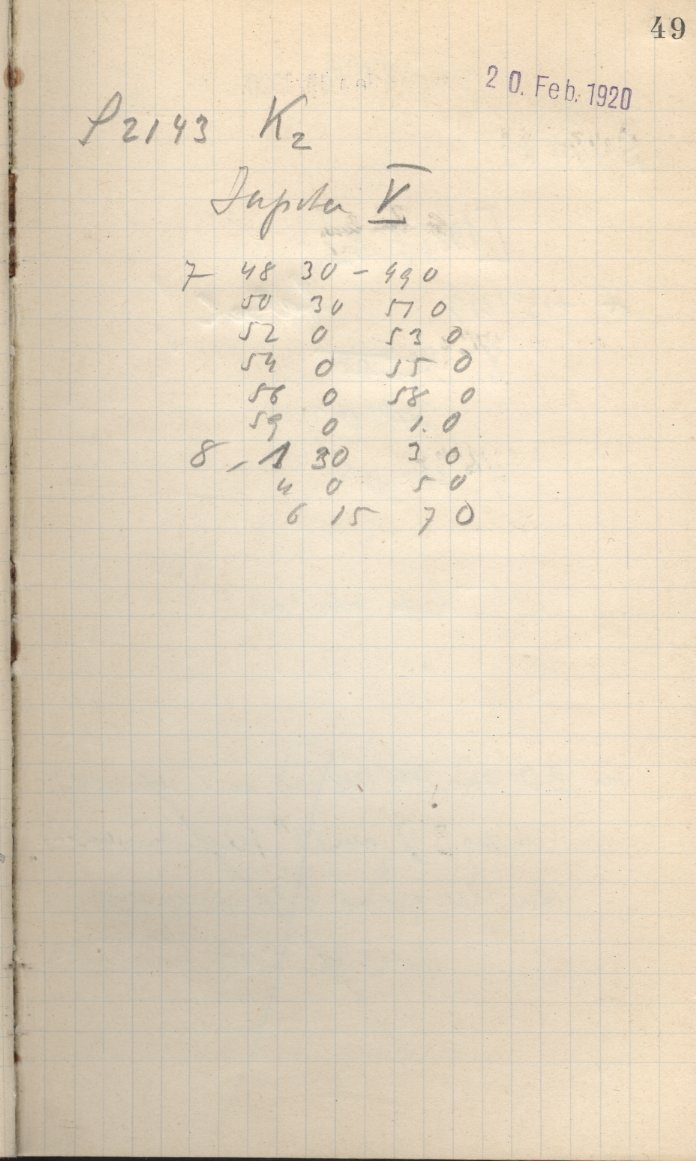 49
20. Feb. 1920
P2143 K2
Jupiter V
7 48 30 - 49 0
50 30 51 0
52 0 53 0
54 0 55 0
56 0 58 0
59 0 1. 0
8 - 1 30 3 0
4 0 5 0
6 15 7 0